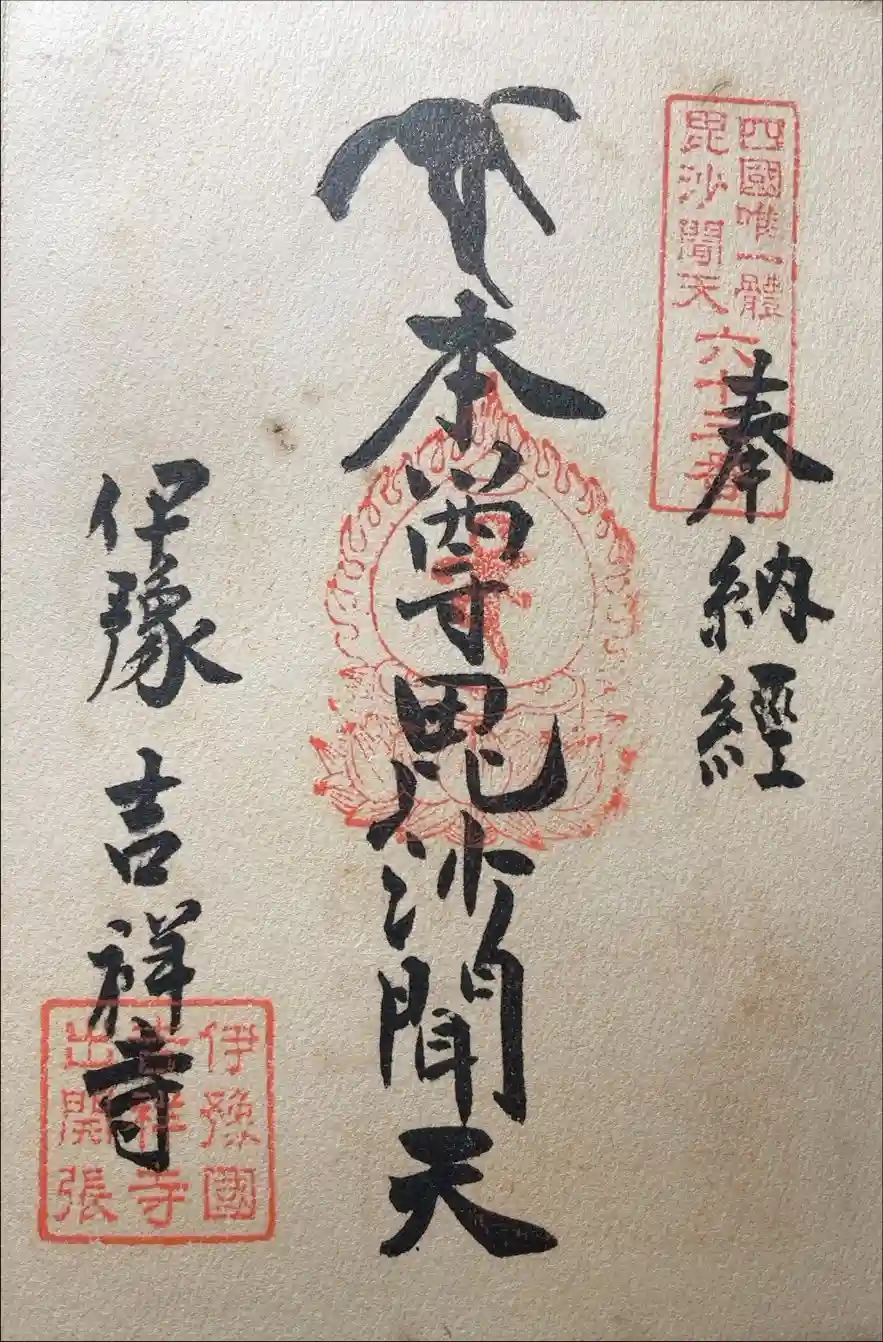 四國唯一體
毘沙聞天
六十三番
奉納經
本尊毘沙聞天
伊豫吉祥寺
伊豫國
吉祥寺
出開張